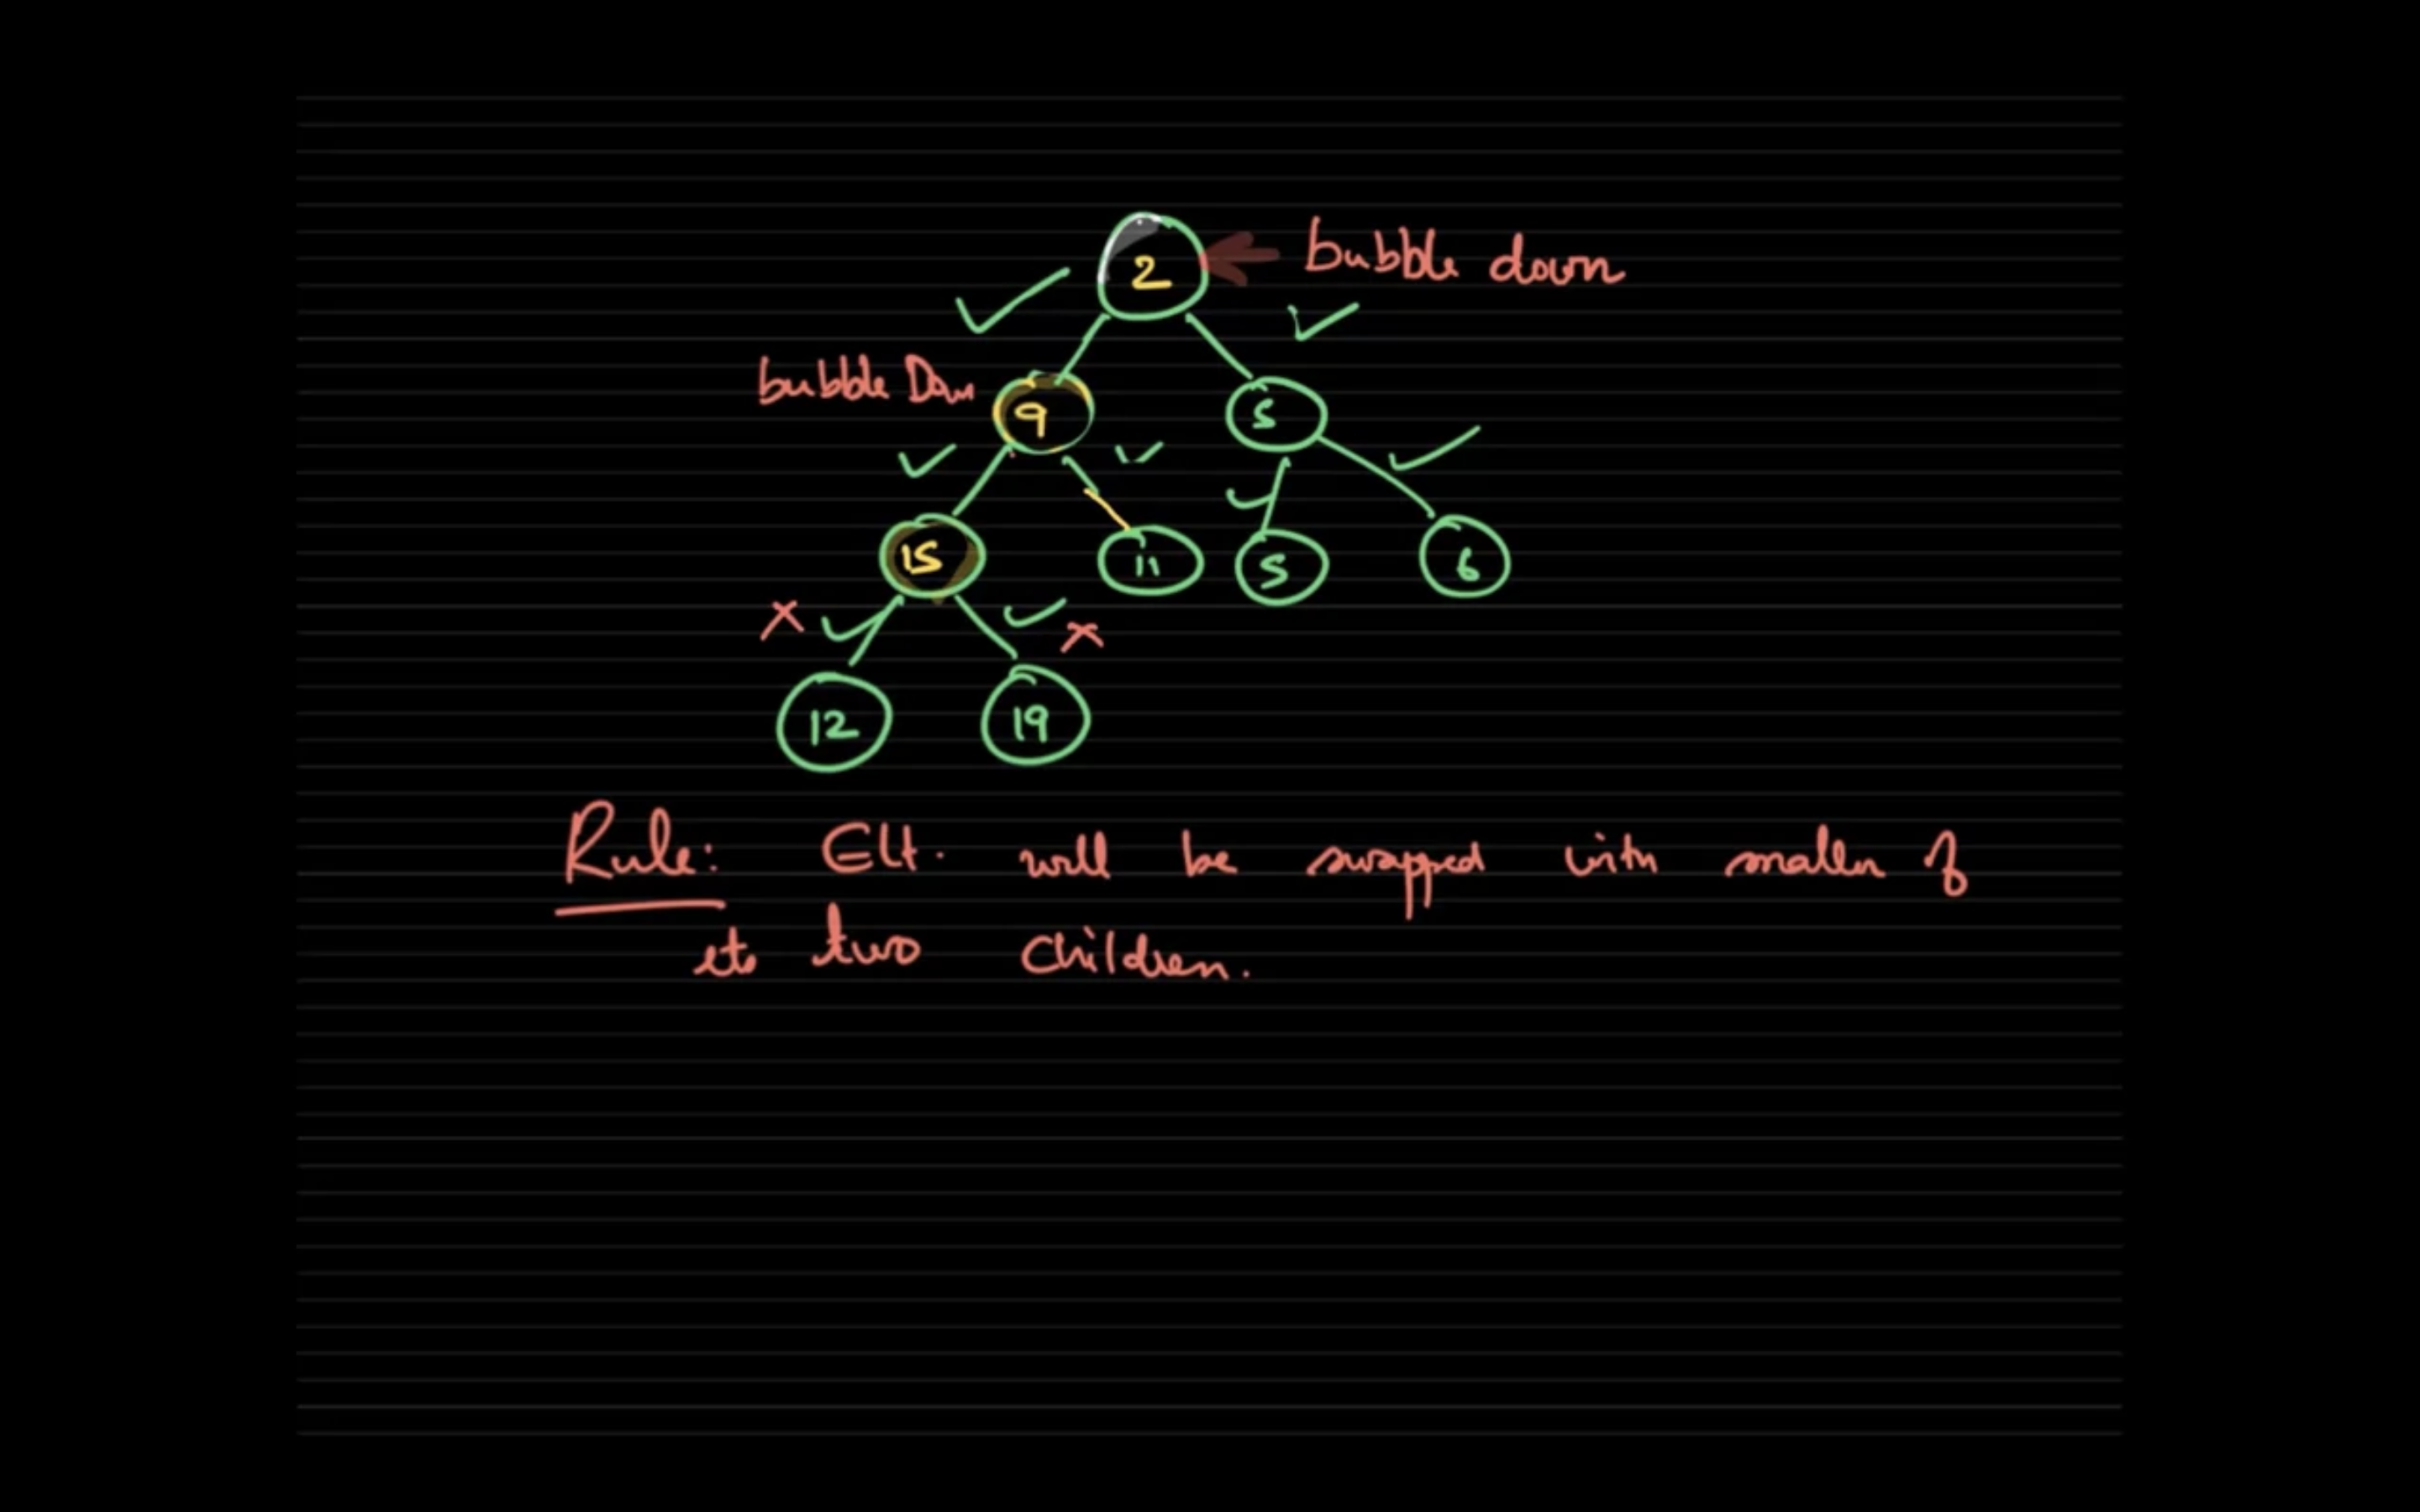 2 bubble down
bubble Down
9 5
15 11 5 6
12 19
Rule: Elt. will be swapped with smaller of
its two children.